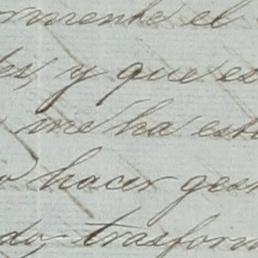 ormente el
tes, y que es
me ha est
o hacer ges
do trasform